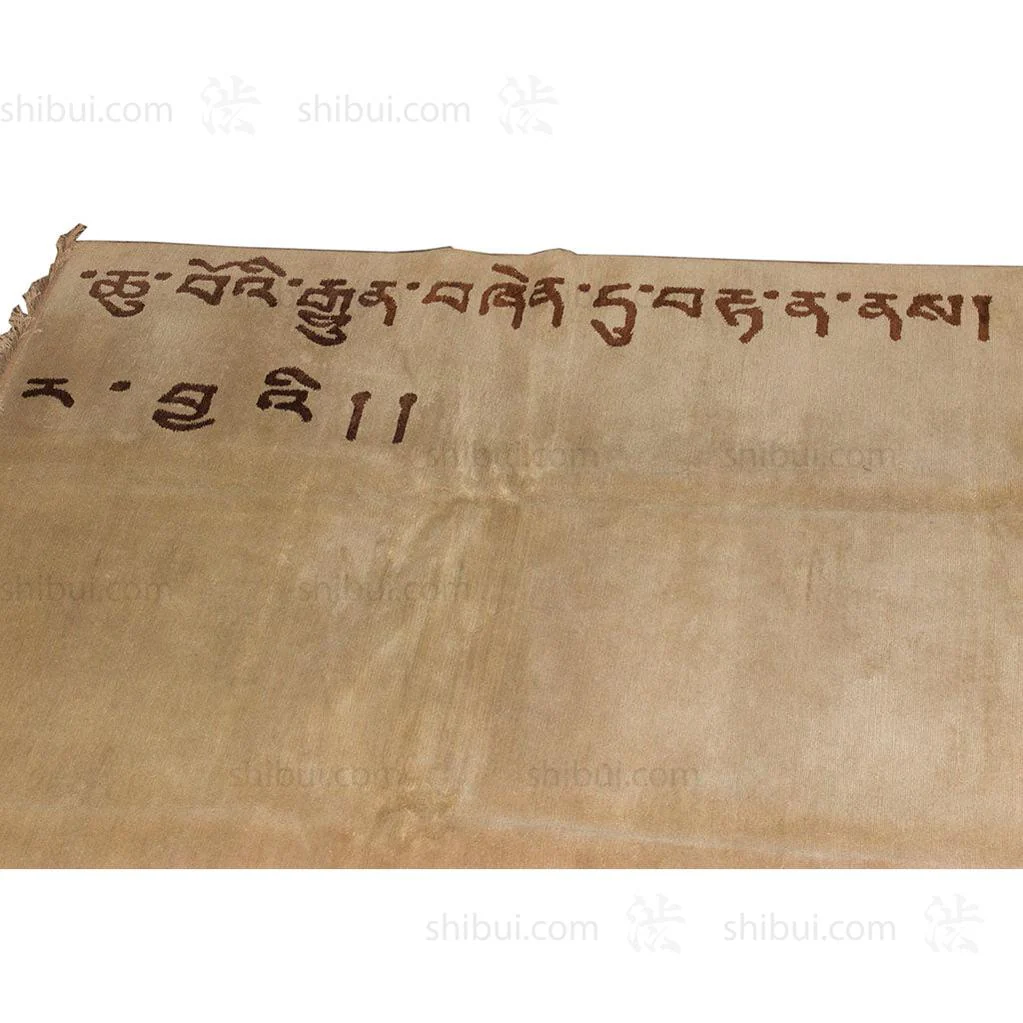 shibui.com shibui.com
་ཆུ་བོའི་རྒྱུན་བཞེན་དུ་བརྟ་ན་ནས།
ར་བྱའི།།
shibui.com shibui.com
shibui.com shibui.com
shibui.com shibui.com
shibui.com shibui.com